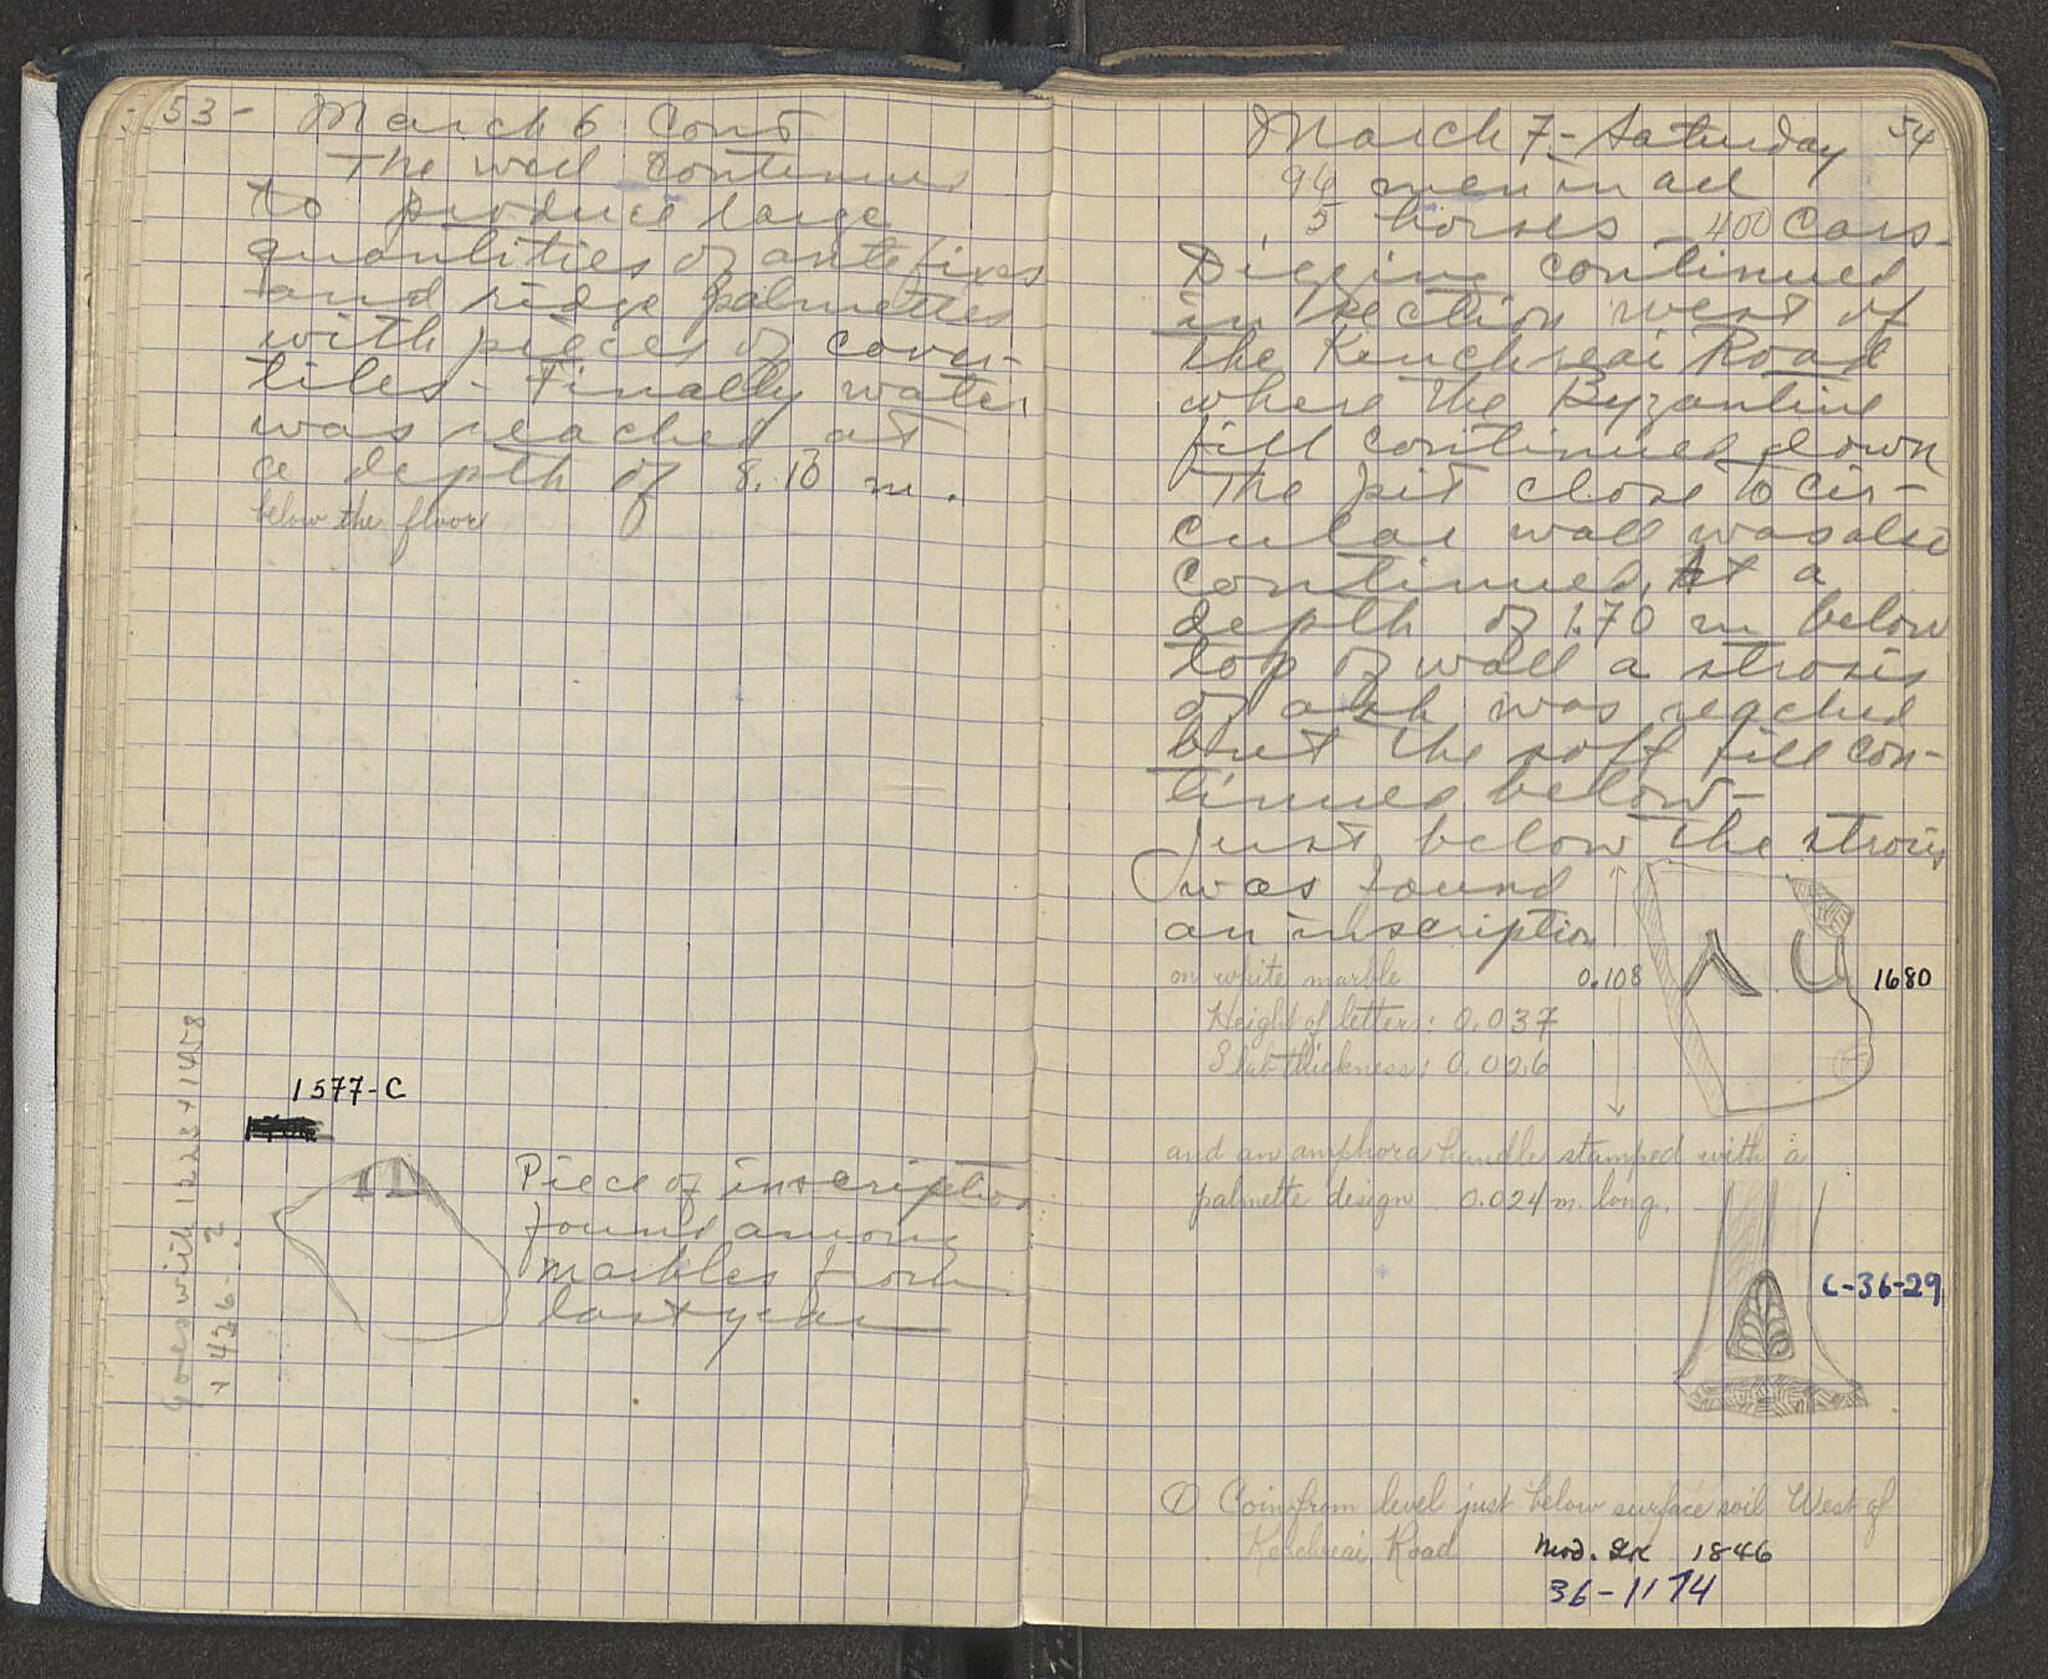 53- March 6 Cont
The well continues
to produce large
quantities of antefixes
and ridge palmettes
with pieces of cover-
tiles - Finally water
was reached at
a depth of 8.10 m.
below the floor
1577-C
Piece of inscription
found among
marbles from
last year
Goes with 1223 + 1458
+ 426-?
March 7- Saturday 54
96 men in all
5 horses 400 cars-
Digging continued
in section west of
the Kenchreai Road
where the Byzantine
fill continued down
The pit close to cir-
cular wall was also
continued. At a
depth of 1.70 m below
top of wall a strosis
of ash was reached
but the soft fill con-
tinued below-
Just below the strosis
was found
an inscription
on white marble 0.108 1680
Height of letters: 0.037
Slab thickness: 0.026
and an amphora handle stamped with a
palmette design 0.024 m. long.
C-36-29
① Coin from level just below surface soil West of
Kenchreai Road Mod. Gk 1846
36-1174